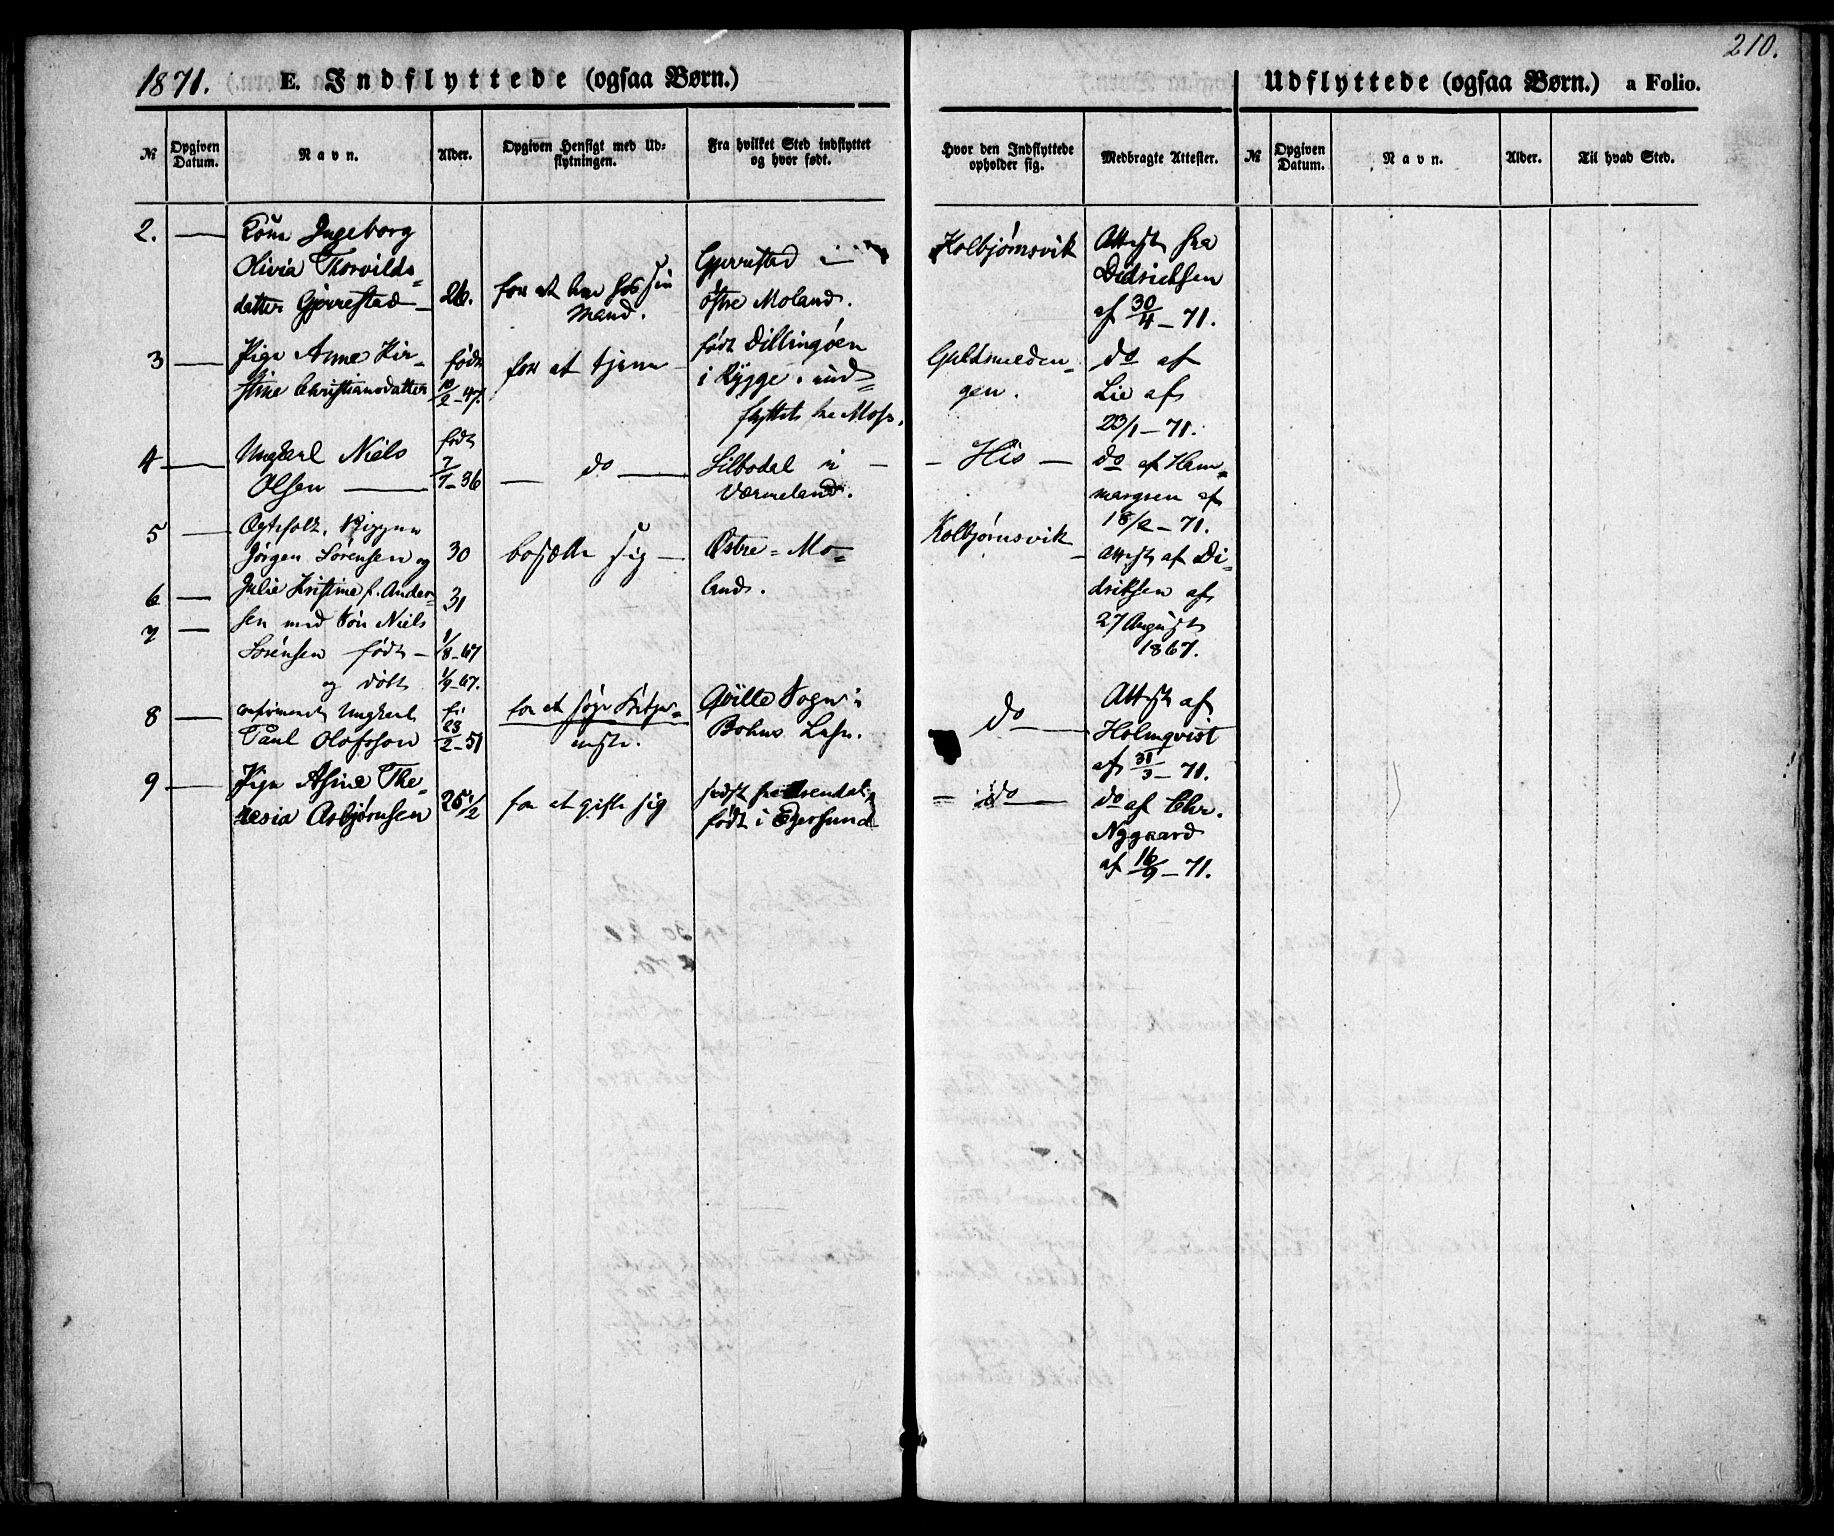 210.
1871. E. Indflyttede (ogsaa Børn.)
Udflyttede (ogsaa Børn.) a Folio.
№ Opgiven Datum. Navn. Alder. Opgiven Hensigt med Udflytningen. Fra hvilket Sted indflyttet og hvor født.
Hvor den Indflyttede opholder sig. Medbragte Attester. № Opgiven Datum. Navn. Alder. Til hvad Sted.
2. — Kone Ingeborg
Olivia Thorvilds-
datter Gjerrestad — 26.
for at hos sin
Mand.
Gjerrestad i
østre Moland.
Kolbjørnsvik
Attest fra
Didriksen
af 30/4 – 71.
3 — Pige Anne Kir-
stine Christiansdatter
født
10/2 – 47.
for at tjene
født Dillingøen
i Rygge, ind-
flyttet fra Moss.
Guldsmeden-
gen.
do af
Lie af
23/1 – 71.
4 — Ungkarl Niels
Olsen —
født
7/7 – 36
— do —
Silbodal i
Værmeland.
– His –
do af Ham-
margren af
18/2 – 71.
5 —
Jørgen Sørensen og 30
bosætte sig —
Østre-Mo-
land.
Kolbjørnsvik
Attest af Di-
driksen af
27 August
1867.
6 — Julie Kristine f. Ander- 31
7 — sen med Søn Niels
Sørensen født – 1/8 – 67
og døbt 1/9 – 67.
8 — confirmeret Ungkarl
Paul Olofsson
f.
23/2 – 51
for at søge Skibstje-
neste.
Qville Sogn i
Bohus Lehn.
do —
Attest af
Holmqvist
af 31/3 – 71.
9 — Pige Asine The-
resia Asbjørnsen 25 1/2
for at gifte sig
sidst fra Arendal,
født i Egersund
– do —
do af Chr.
Nygaard
af 16/9 – 71.